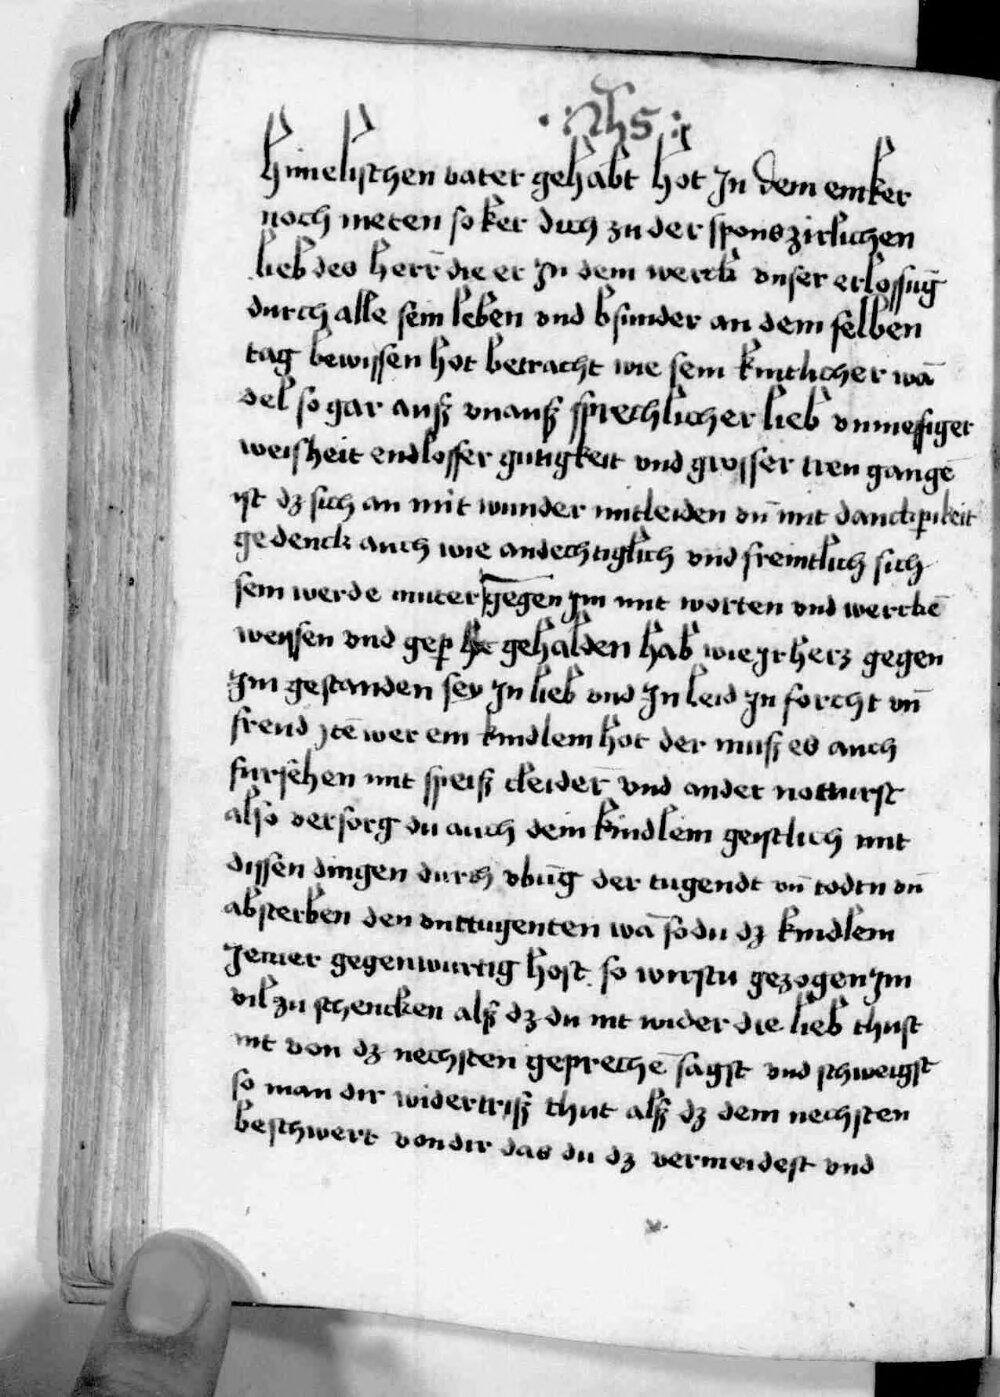 · jhs :
himelischen vater gehabt hot Jn dem einker
noch meten so ker dich zu der sponszirlichen
lieb des herr̄ die er Jn dem werck vnser erlossūg
durch alle sein leben vnd bsunder an dem selben
tag bewissen hot betracht wie sein kintlicher wā
del so gar auß vnauß sprechlicher lieb vnmessiger
weisheit endlosser gutigkeit vnd grosser treu gangē
ist dz sich an mit wunder mitleiden vn̄ mit danckperkeit
gedenck auch wie andechtiglich vnd freintlich sich
sein werde muter gegen Jm mit worten vnd werckē
weissen vnd gep gehalden hab wie Jr herz gegen
Jm gestanden sey Jn lieb vnd Jn leid Jn forcht vn̄
freud Jtē wer ein kindlein hot der muß es auch
fursehen mit speiß cleider̄ vnd ander notturft
also versorg du auch dein kindlein geistlich mit
dissen dingen durch vbūg der tugendt vn̄ todtn vn̄
absterben den vnttugenten wā so du dz kindlein
Jemer gegenwurtig host so wirstu gezogen Jm
vil zu schencken alß dz du nit wider die lieb thust
nit von dz nechsten geprechē sagst vnd schweigst
so man dir widertriß thut alß dz dein nechsten
beschwert von dir das du dz vermeidest vnd